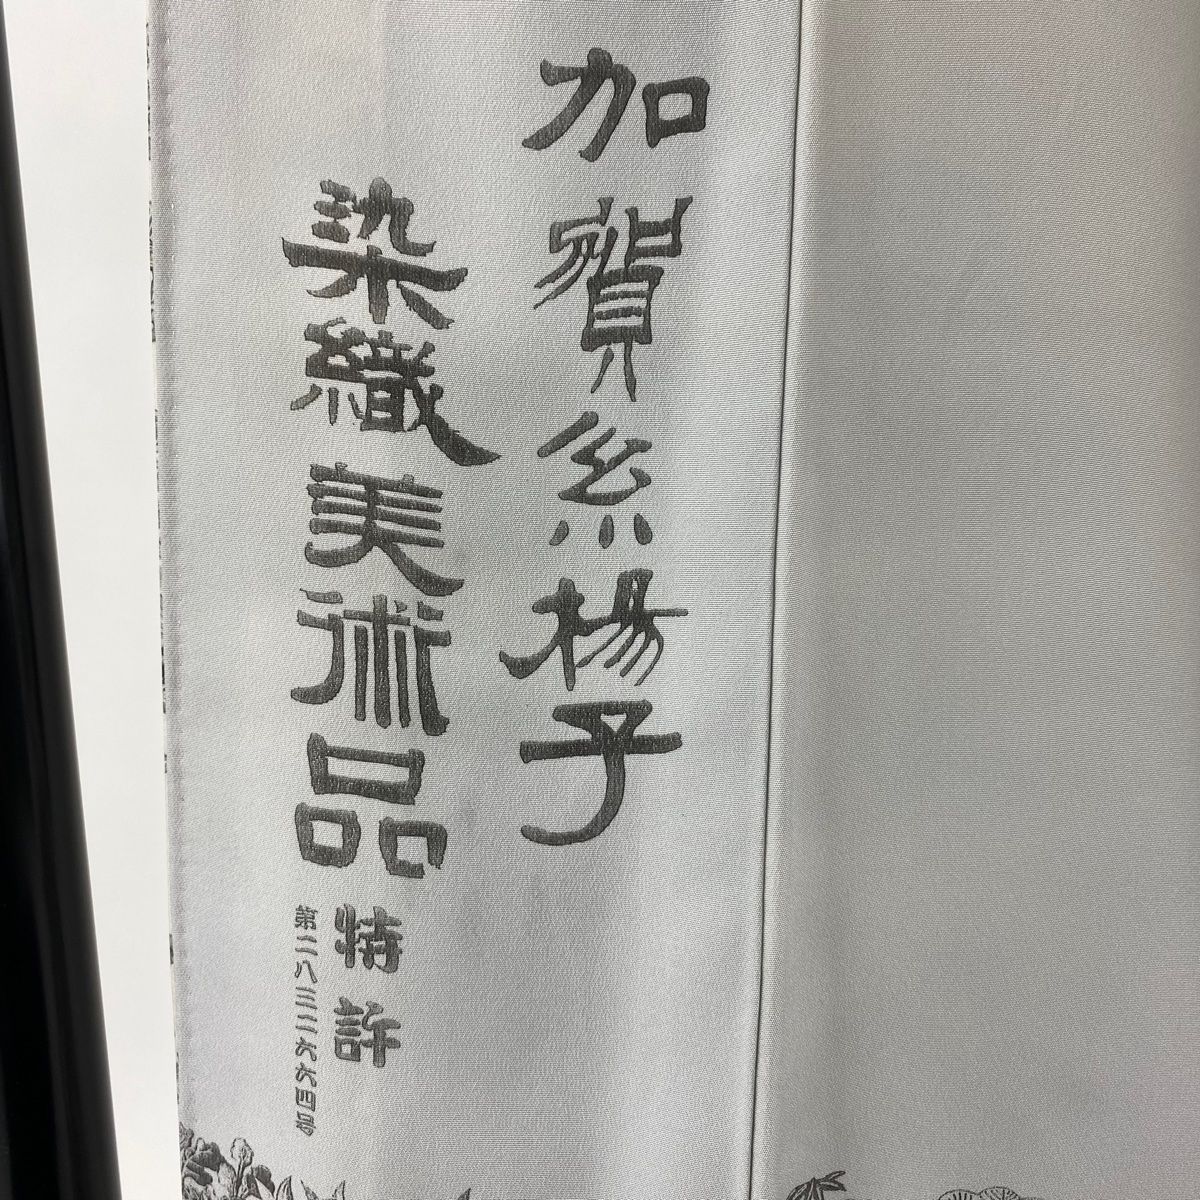 加賀糸楊子
染織美術品
特許
第二八三二六六四号